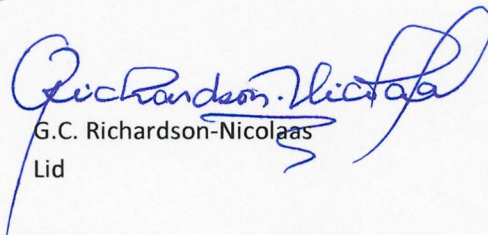 Richardson-Nicolaas
G.C. Richardson-Nicolaas
Lid